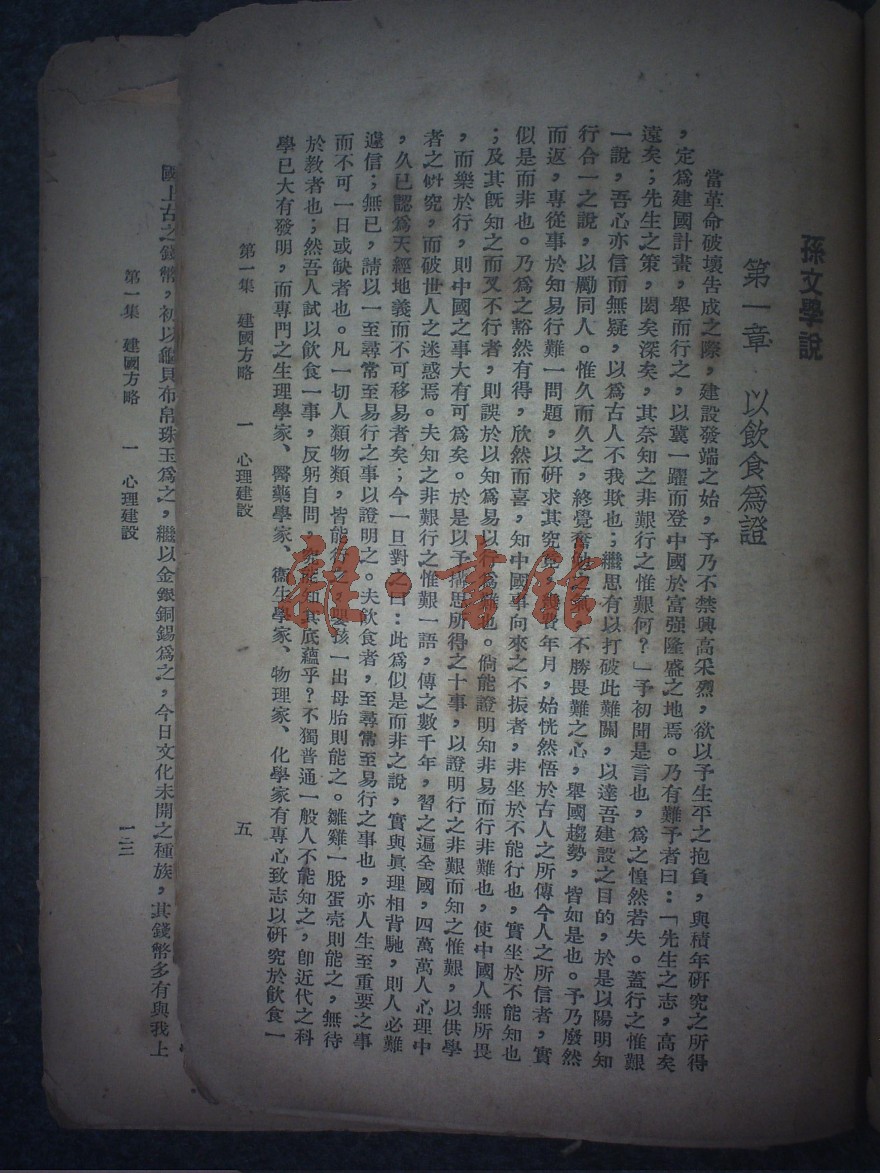 孫文學說
第一章 以飲食爲證
當革命破壞告成之際，建設發端之始，予乃不禁興高采烈，欲以予生平之抱負，與積年研究之所得
，定爲建國計畫，舉而行之，以冀一躍而登中國於富强隆盛之地焉。乃有難予者曰：「先生之志，高矣
遠矣；先生之策，閎矣深矣，其奈知之非艱行之惟艱何？」予初聞是言也，爲之惶然若失。蓋行之惟艱
一說，吾心亦信而無疑，以爲古人不我欺也；繼思有以打破此難關，以達吾建設之目的，於是以陽明知
行合一之說，以勵同人。惟久而久之，終覺奮勉之氣，不勝畏難之心，舉國趨勢，皆如是也。予乃廢然
而返，專從事於知易行難一問題，以研求其究竟，費年月，始恍然悟於古人之所傳今人之所信者，實
似是而非也。乃爲之豁然有得，欣然而喜，知中國事向來之不振者，非坐於不能行也，實坐於不能知也
；及其旣知之而又不行者，則誤於以知爲易以行爲難也。倘能證明知非易而行非難也，使中國人無所畏
，而樂於行，則中國之事大有可爲矣。於是以予構思所得之十事，以證明行之非艱而知之惟艱，以供學
者之研究，而破世人之迷惑焉。夫知之非艱行之惟艱一語，傳之數千年，習之遍全國，四萬萬人心理中
，久已認爲天經地義而不可移易者矣；今一旦對之曰：此爲似是而非之說，實與眞理相背馳，則人必難
遽信；無已，請以一至尋常至易行之事以證明之。夫飲食者，至尋常至易行之事也，亦人生至重要之事
而不可一日或缺者也。凡一切人類物類，皆能行之，嬰孩一出母胎則能之。雛雞一脫蛋壳則能之，無待
於敎者也；然吾人試以飲食一事，反躬自問，究能知其底蘊乎？不獨普通一般人不能知之，卽近代之科
學已大有發明，而專門之生理學家、醫藥學家、衞生學家、物理家、化學家有專心致志以研究於飲食一
第一集 建國方略 一 心理建設 五
國上古之錢幣，初以龜貝布帛珠玉爲之，繼以金銀銅錫爲之，今日文化未開之種族，其錢幣多有與我上
第一集 建國方略 一 心理建設 一三
雜·書館